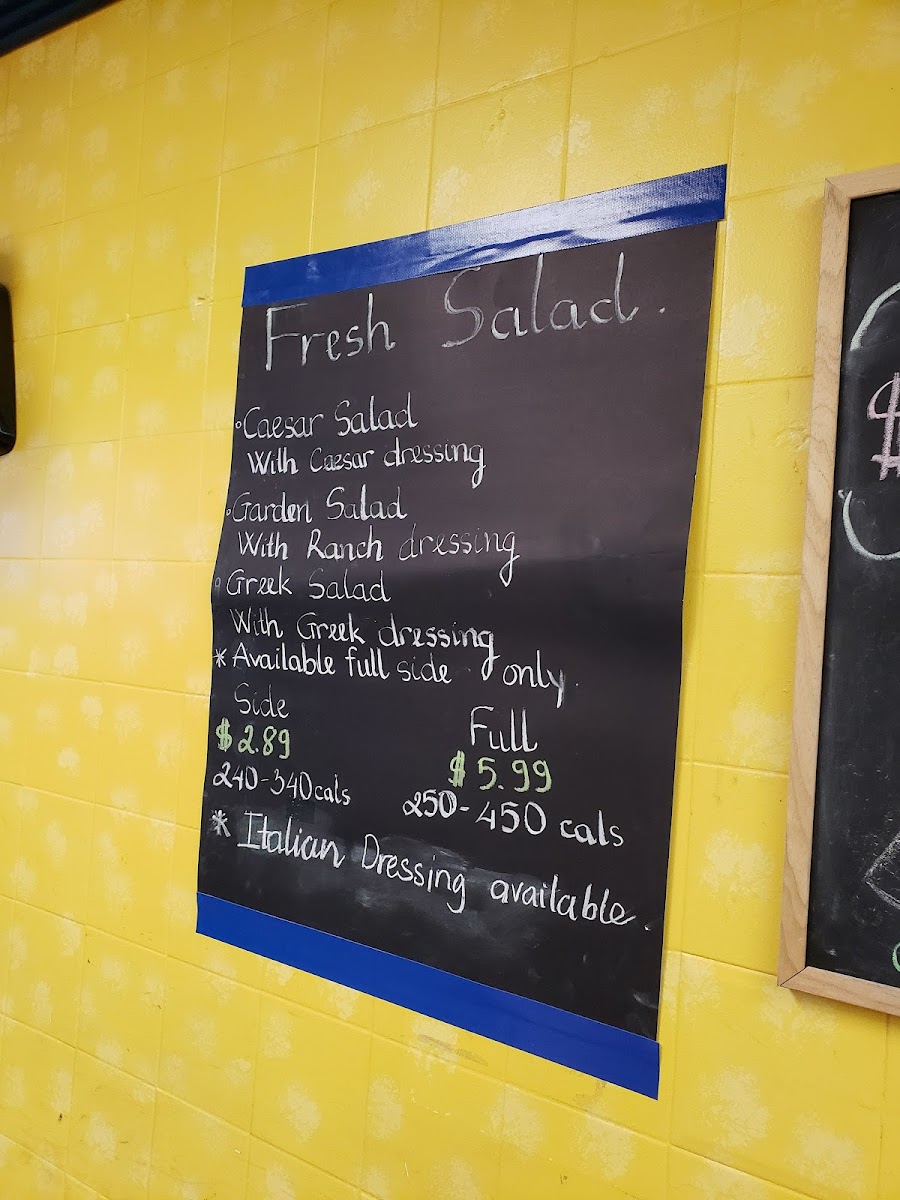 Fresh Salad.
Caesar Salad
With Caesar dressing
Garden Salad
With Ranch dressing
Greek Salad
With Greek dressing
* Available full side only.
Side
$2.89
240-340cals
Full
$5.99
250-450 cals
* Italian Dressing available.
$